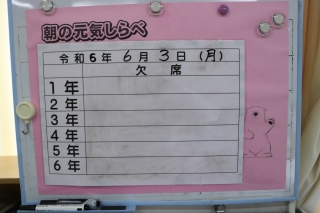 朝の元気しらべ
令和6年 6月 3日 (月)
欠席
1年
2年
3年
4年
5年
6年